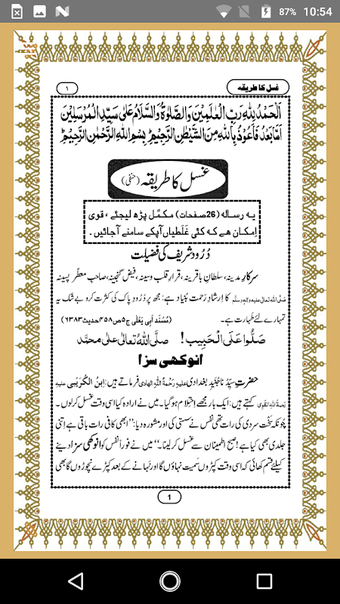 87% 10:54
١ غسل کا طریقہ
اَلْحَمْدُ لِلّٰهِ رَبِّ الْعٰلَمِیْنَ وَالصَّلٰوةُ وَالسَّلَامُ عَلٰی سَیِّدِ الْمُرْسَلِیْنَ
اَمَّا بَعْدُ فَاَعُوْذُ بِاللّٰهِ مِنَ الشَّیْطٰنِ الرَّجِیْمِ بِسْمِ اللّٰهِ الرَّحْمٰنِ الرَّحِیْمِ
غسل کا طریقہ (حنفی)
یہ رسالہ (26صفحات) مکمَّل پڑھ لیجئے ، قوی
اِمکان ھے کہ کئی غَلَطیاں آپکے سامنے آجائیں .
دُرُود شریف کی فضیلت
سرکارِ مدینہ، سلطانِ باقرینہ، قرارِ قلب و سینہ، فیض گنجینہ، صاحبِ معطّر پسینہ
صَلَّی اللہ تعالٰی علیہ واٰلہٖ وسلّم کا اِرشادِ رَحمت بُنیاد ہے: مجھ پر دُرُودِ پاک کی کثرت کرو بے شک یہ
تمہارے لئے طہارت ہے۔ (مُسْنَد اَبِی یَعْلٰی ج۵ ص۴۵۸ حدیث ۶۳۸۳)
صَلُّوْا عَلَی الْحَبِیْب! صلَّی اللّٰهُ تعالٰی علٰی محمَّد
انوکھی سزا
حضرتِ سیِّدُنا جُنید بغدادی علیہ رَحْمَۃُ اللہِ الھادی فرماتے ہیں: اِبنُ الْکُرَیْبِی علیہ
کہتے ہیں: ایک بار مجھے اِحتِلام ہوگیا۔ میں نے ارادہ کیا اسی وقت غسل کرلوں۔
چونکہ سخت سردی کی رات تھی نفس نے سستی کی اور مشورہ دیا: "ابھی کافی رات باقی ہے اِتنی
جلدی بھی کیا ہے! صبح اطمینان سے غسل کرلینا۔" میں نے فوراً نفس کو انوکھی سزا دینے
کیلئے قسم کھائی کہ اسی وقت کپڑوں سَمیت نہاؤں گا اور نہانے کے بعد کپڑے نچوڑوں گا بھی
1